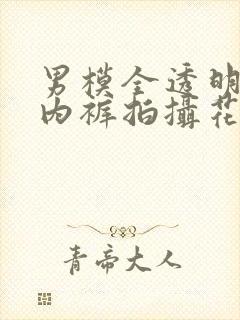 男模全透明
内裤拍摄花
青帝大人